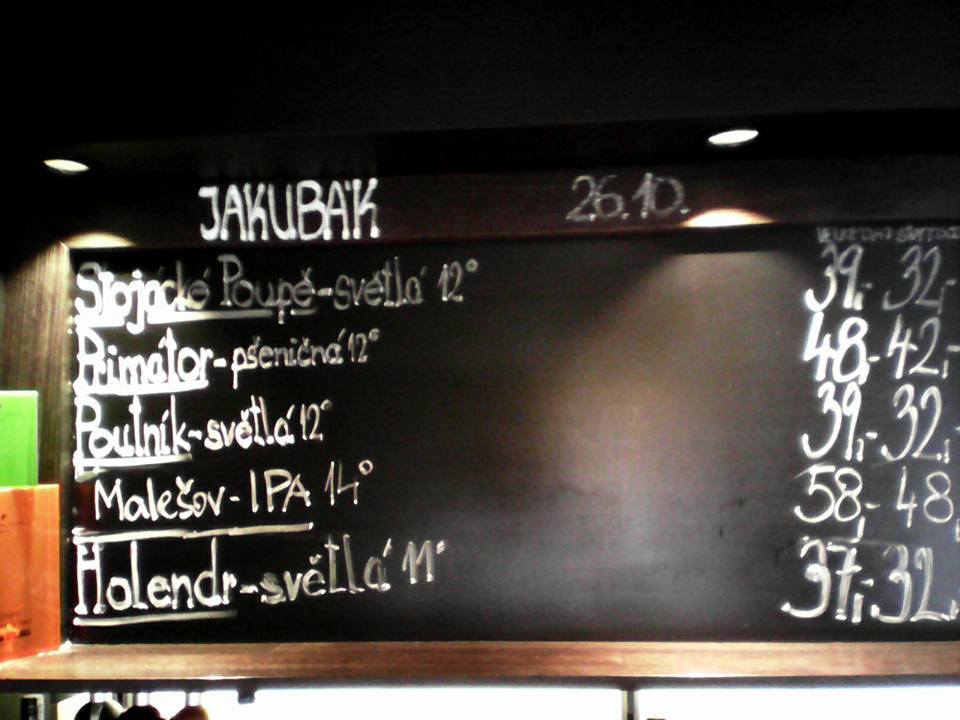 JAKUBÁK 26.10.
Stojácké Poupě - světlá 12° 39,- 32,-
Primátor - pšeničná 12° 48,- 42,-
Poutník - světlá 12° 39,- 32,-
Malešov - IPA 14° 58,- 48,-
Holendr - světlá 11° 37,- 32,-